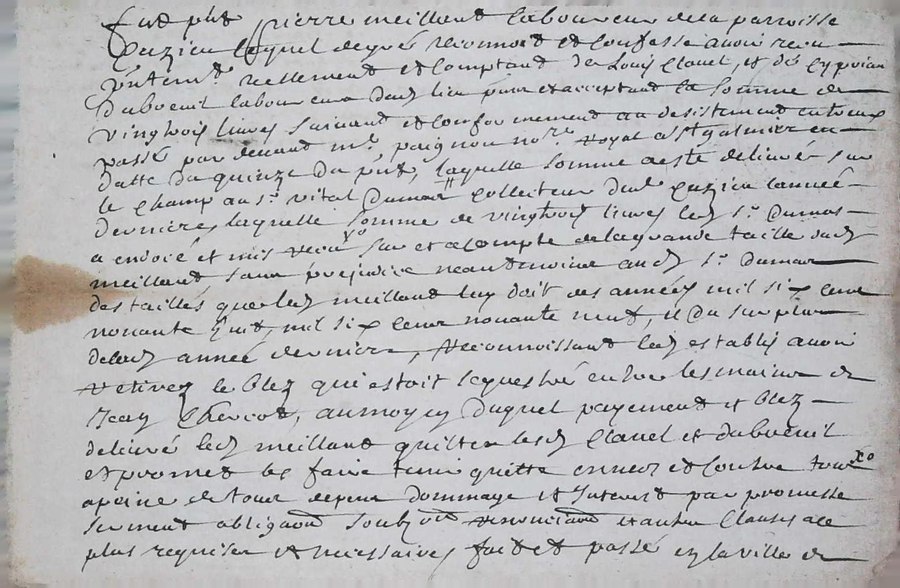 fut pnt pierre meilland laboureur de la parroisse
Cuzieu lequel de gré reconnoit et confesse avoir receu
pntemt reellement et comptant de Louis Clavel, et de Cyprian
Dubreuil laboureurs dud lieu pnts et acceptant la somme de
vingtrois livres suivant et conformement au desistement entreux
passé par devant me paignon nore royal a st galmier en
datte du quinze du pnt, laquelle somme a esté delivrée sur
le champ au sr vital Dumas collecteur dud Cuzieu lannée
derniere, laquelle somme de vingtrois livres led sr Dumas
a endocé et mis sur et a compte de la grande taille dud
meilland sans prejudice neantmoins aud sr Dumas
des tailles que led meilland luy doit des années mil six cent
nonante huit, mil six cent nonante neuf, et du surplus
de lad année derniere, reconnoissant led establis avoir
retirez le blez qui estoit sequestré entre les mains de
Jean Chercot, au moyen duquel payement et blez
delivré led meilland quitte lesd Clavel et dubreuil
et promet les faire tenir quitte envers et contre tous
a peine de tous depens dommage et interest par promesse
serment obligaon soubzon renonciaon et autres clauses a ce
plus requises et necessaires, fait et passé en la ville de